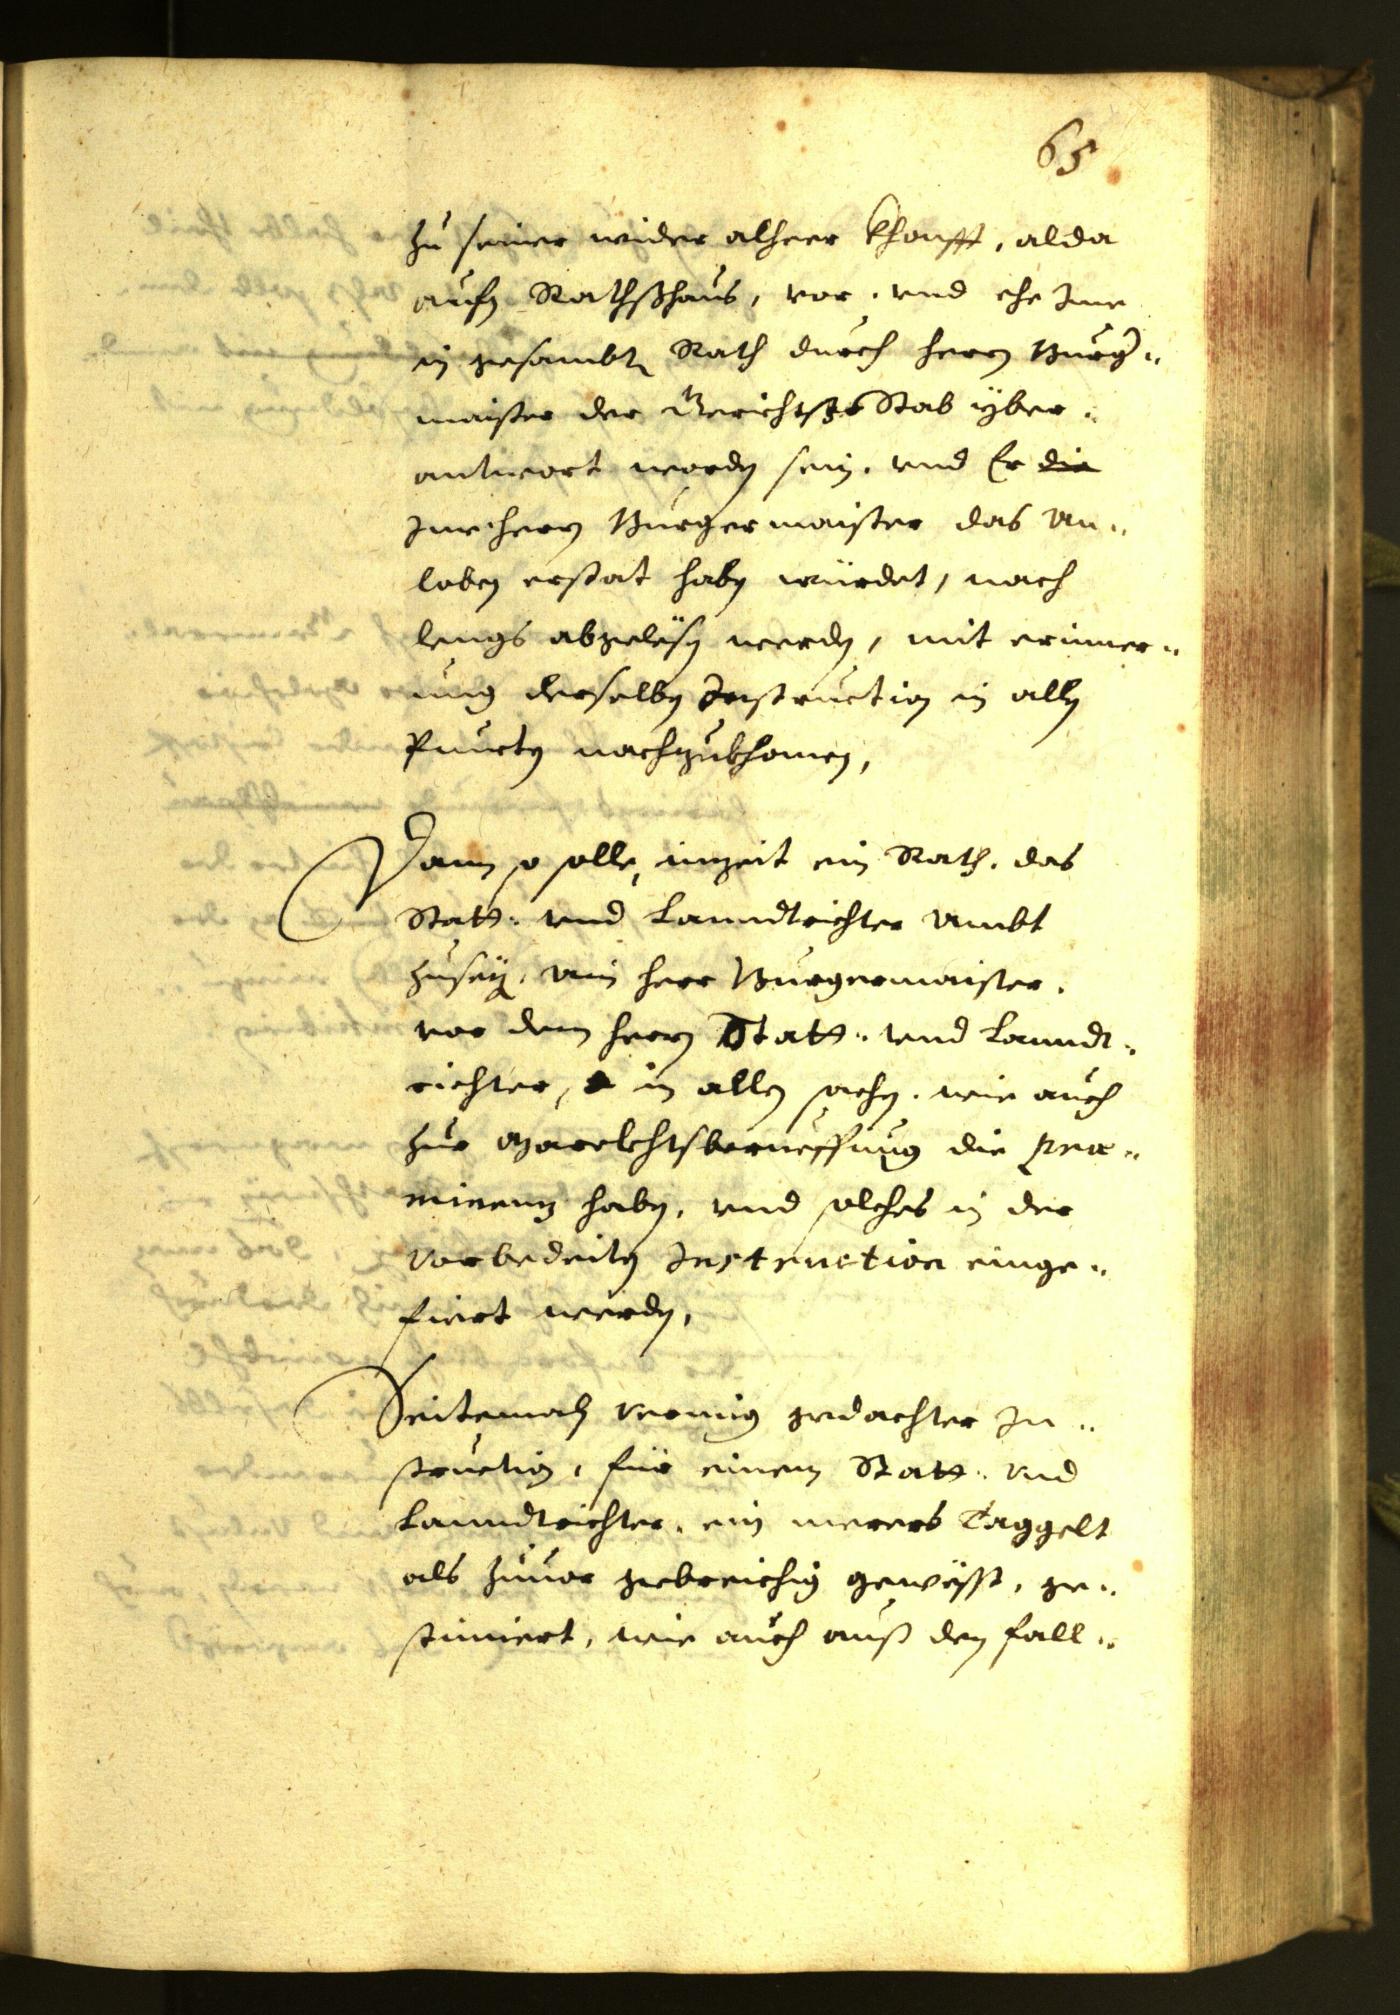 65
zu seiner wider alheer Khonfft, alda
aufn Rathßhaus, vor, vnd ehe Ime
in gesambtn Rath durch herrn Burg¬
maister der Gerichts Stab yber¬
antwort wordn sein, vnd Er die
Ime herrn Burgermaister das An¬
loben erstat habn würdet, nach
lengs abgelesn werdn, mit erinner¬
ung derselbn Instruction in alln
Puncten nachzukhomen,
Dann so solle, inzeit ein Rath, das
Statt: vnd Lanndtrichter Ambt
zusezn, ain herr Burgermaister,
vor dem herrn Statt: vnd Lanndt¬
richter, in allen sachn, wie auch
zur Malrechtsberueffung die prae¬
minenz habn, vnd solches in der
vorbedeiten Instruction einge¬
fiert werdn,
Seitemaln vermüg gedachter In¬
struction, für einem Statt: vnd
Lanndtrichter, ein merers Taggelt
als zuuor gebreichig gewesst, ge¬
stimiert, wie auch auß den fall¬